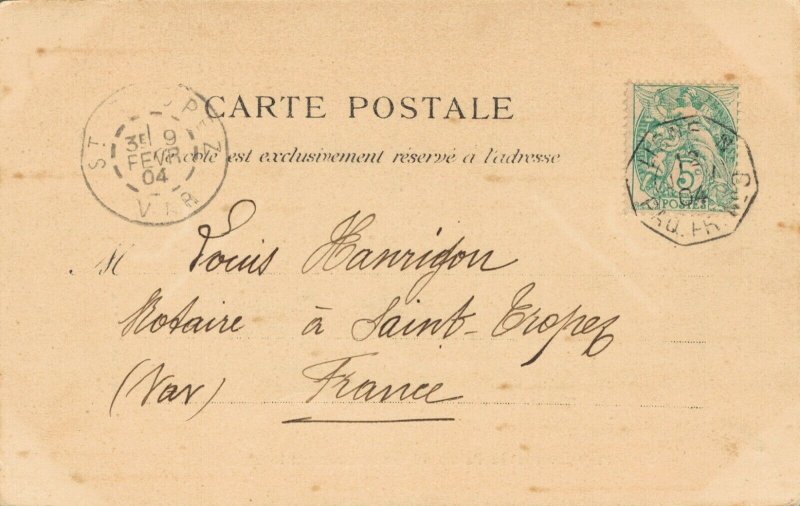 CARTE POSTALE
Ce côté est exclusivement réservé à l'adresse
ST TROPEZ
3E
9
FEVR
04
VAR
5c
POSTES
LIGNE N
PAQ. FR.
04
M Louis Hanrigou
Notaire à Saint-Tropez
(Var) France